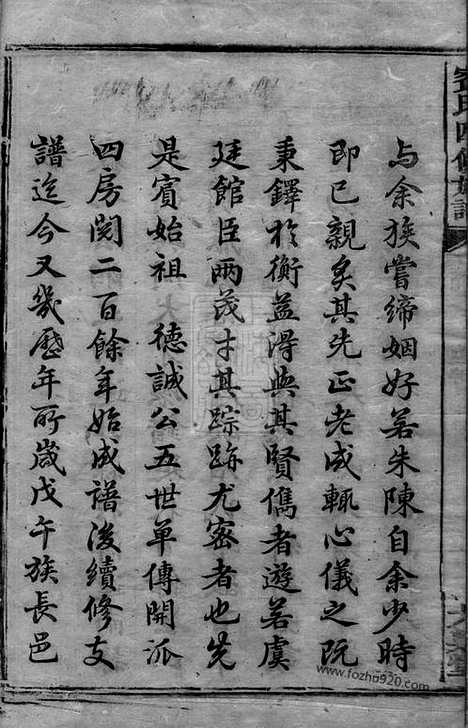 与余族嘗締姻好若朱陳自余少時
即已親炙其先正老成輒心儀之阮
秉鐸於衡益得與其賢儁者遊若虞
廷館臣兩茂才其踪跡尤密者也先
是賓始祖 德誠公五世單傳開派
四房閱二百餘年始成譜後續修支
譜迄今又幾歷年所歲戊午族長邑
www.fozhu920.com